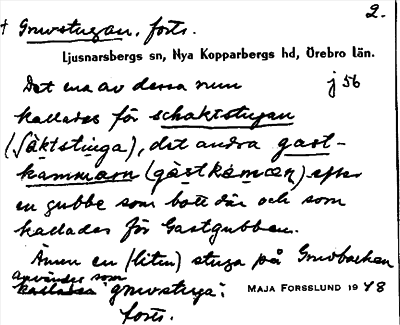 2.
† Gruvstugan, forts.
Ljusnarsbergs sn, Nya Kopparbergs hd, Örebro län.
Det ena av dessa rum j 56
kallades för schaktstugan
(säktstuga), det andra gast-
kammarn (gàstkámaɳ) efter
en gubbe som bott där och som
kallades för Gastgubben.
Även en (liten) stuga på Gruvbacken
användes som
kallades gruvstuga.
MAJA FORSSLUND 1948
forts.